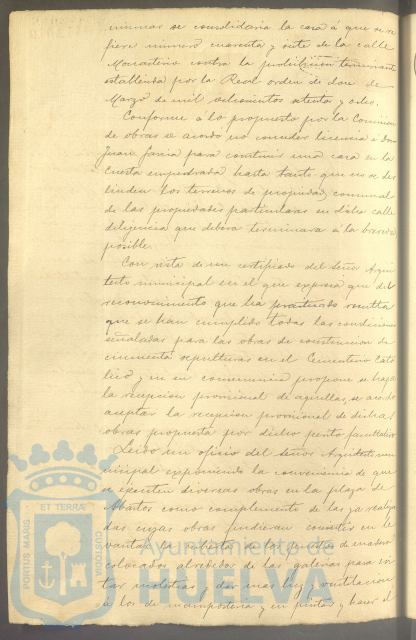 se consolidaria la casa á que se re
fiere número cuarenta y siete de la calle
Monasterio contra la prohibición terminante
establecida por la Real orden de doce de
Marzo de mil ochocientos setenta y ocho.
Conforme a lo propuesto por la Comision
de obras se acordó no conceder licencia á Don
Juan Garcia para construir una casa en la
Cuesta empedrada hasta tanto que no se des
linden los terrenos de propiedad comunal
de las propiedades particulares en dicha calle
diligencia que debera terminarse á la brevedad
posible.
Con vista de un certificado del Señor Arqui
tecto municipal en el que expresa que del
reconocimiento que ha practicado resulta
que se han cumplido todas las condiciones
señaladas para las obras de construccion de
cincuenta sepulturas en el Cementerio Cató
lico y en su consecuencia propone se haga
la recepcion provisional de aquellas, se acordó
aceptar la recepcion provisional de dichas
obras propuesta por dicho perito facultativo
Leido un oficio del Señor Arquitecto mu
nicipal exponiendo la conveniencia de que
se ejecuten diversas obras en la plaza de
Abastos como complemento de las ya realiza
das cuyas obras pudieran consistir en le
vantar la cubierta de los de madera
colocados alrededor de las galerias para
molestias y dar mas luz y ventilacion
a los de y en pintar y hacer el
PORTUS MARIS ET TERRAE CUSTODIA
Ayuntamiento de
HUELVA